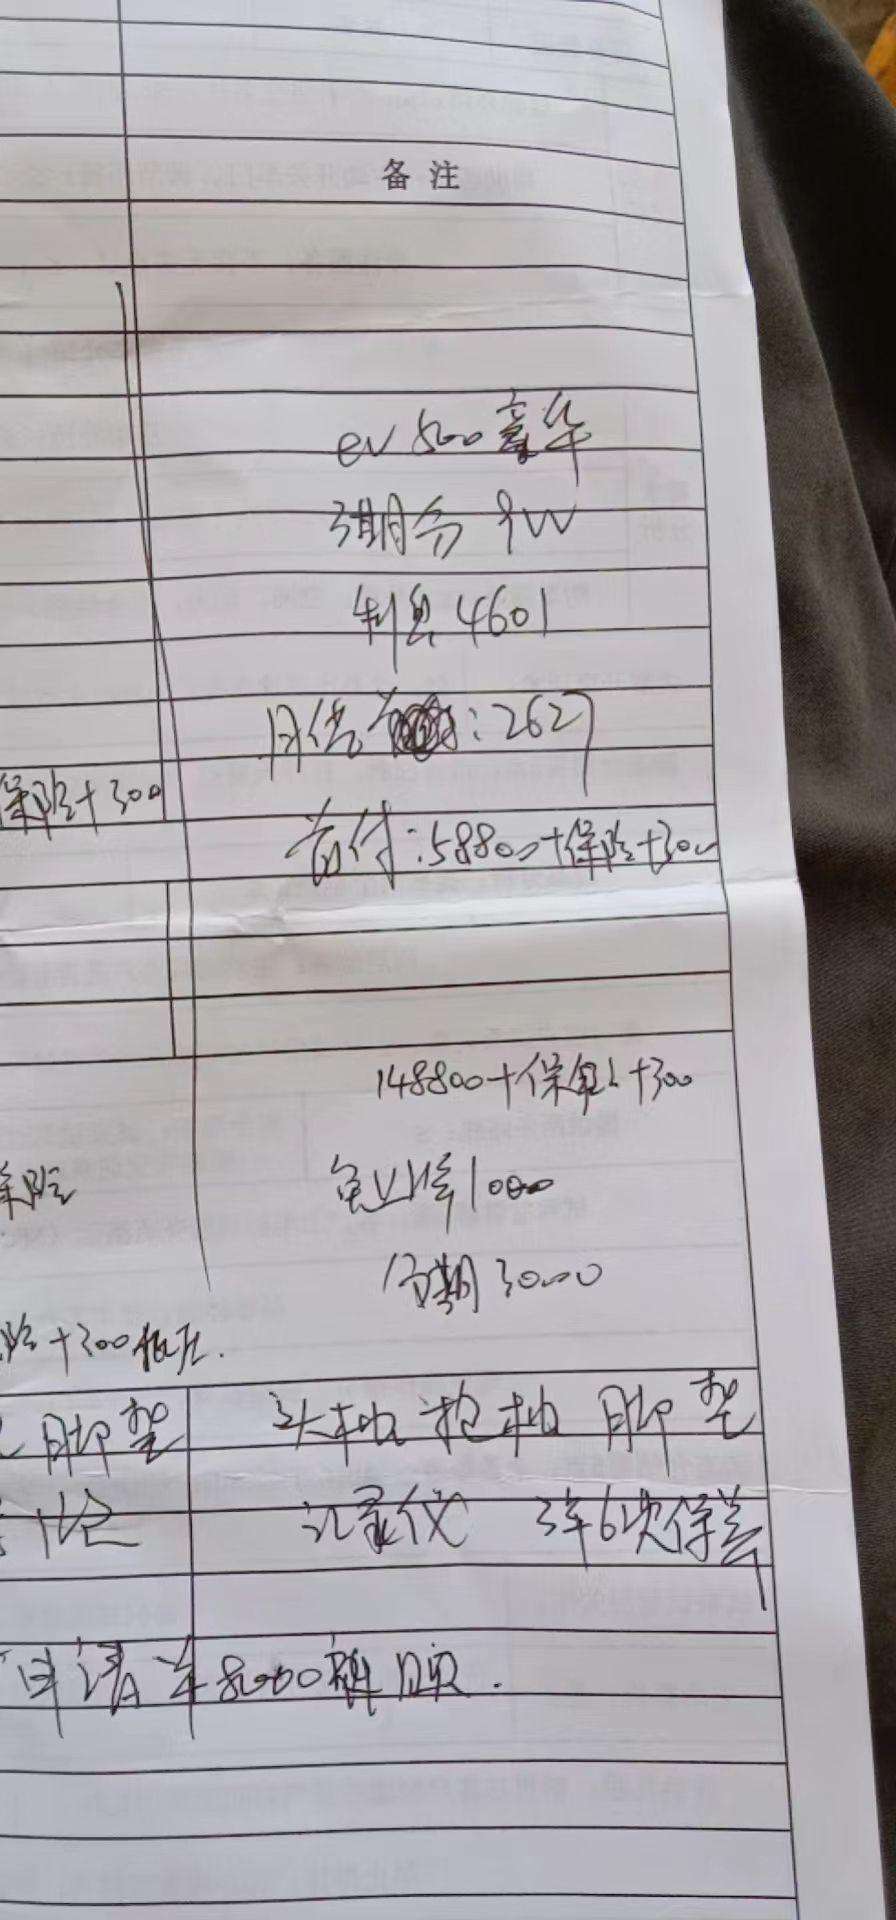 备注
ev 500豪华
分 9W
利息4601
月供:2627
保险+300
首付:58800+保险+300
148800+保险+300
1000
分期3000
保险
险+300
脚垫
头枕 抱枕 脚垫
记录仪 3年6次保养
申请 8000